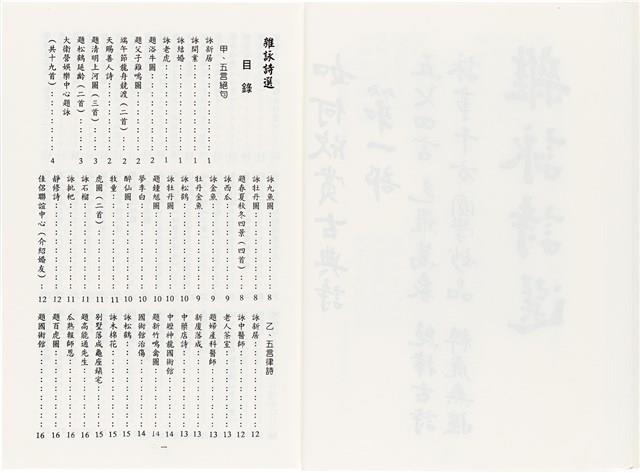 雜詠詩選
目錄
甲、五言絕句
詠新居：：：：：：：：1
詠開業：：：：：：：：1
詠結婚：：：：：：：：1
詠老虎：：：：：：：：1
題浴牛圖：：：：：：：2
題父子雞鳴圖：：：：：2
端午節龍舟競渡（二首）：2
天賜善人詩：：：：：：2
題清明上河圖（三首）：3
題松鶴延齡（二首）：：3
大衛營娛樂中心題詠
（共十九首）：：：：：4
詠九魚圖：：：：：：：8
詠牡丹圖：：：：：：：8
題春夏秋冬四景（四首）：8
詠西瓜：：：：：：：：9
詠金魚：：：：：：：：9
牡丹金魚：：：：：：：9
詠松鶴：：：：：：：：10
詠牡丹圖：：：：：：：10
題鍾馗圖：：：：：：：10
夢李白：：：：：：：：10
醉仙圖：：：：：：：：10
牧童：：：：：：：：：11
虎圖（二首）：：：：：11
詠石榴：：：：：：：：11
詠枇杷：：：：：：：：11
靜修詩：：：：：：：：12
佳侶聯誼中心（介紹婚友）：12
乙、五言律詩
詠新居：：：：：：：：12
詠中醫師：：：：：：：12
老人茶室：：：：：：：13
題婦產科醫師：：：：：13
新廈落成：：：：：：：13
中藥店詩：：：：：：：13
中壢神龍國術館：：：：14
題新竹鳴禽圖：：：：：14
國術館治傷：：：：：：14
詠松鶴：：：：：：：：15
詠木棉花：：：：：：：15
別墅落成龜座鎮宅：：：15
題高能通先生：：：：：16
瓜熟報師恩：：：：：：16
題百虎圖：：：：：：：16
題國術館：：：：：：：16
一